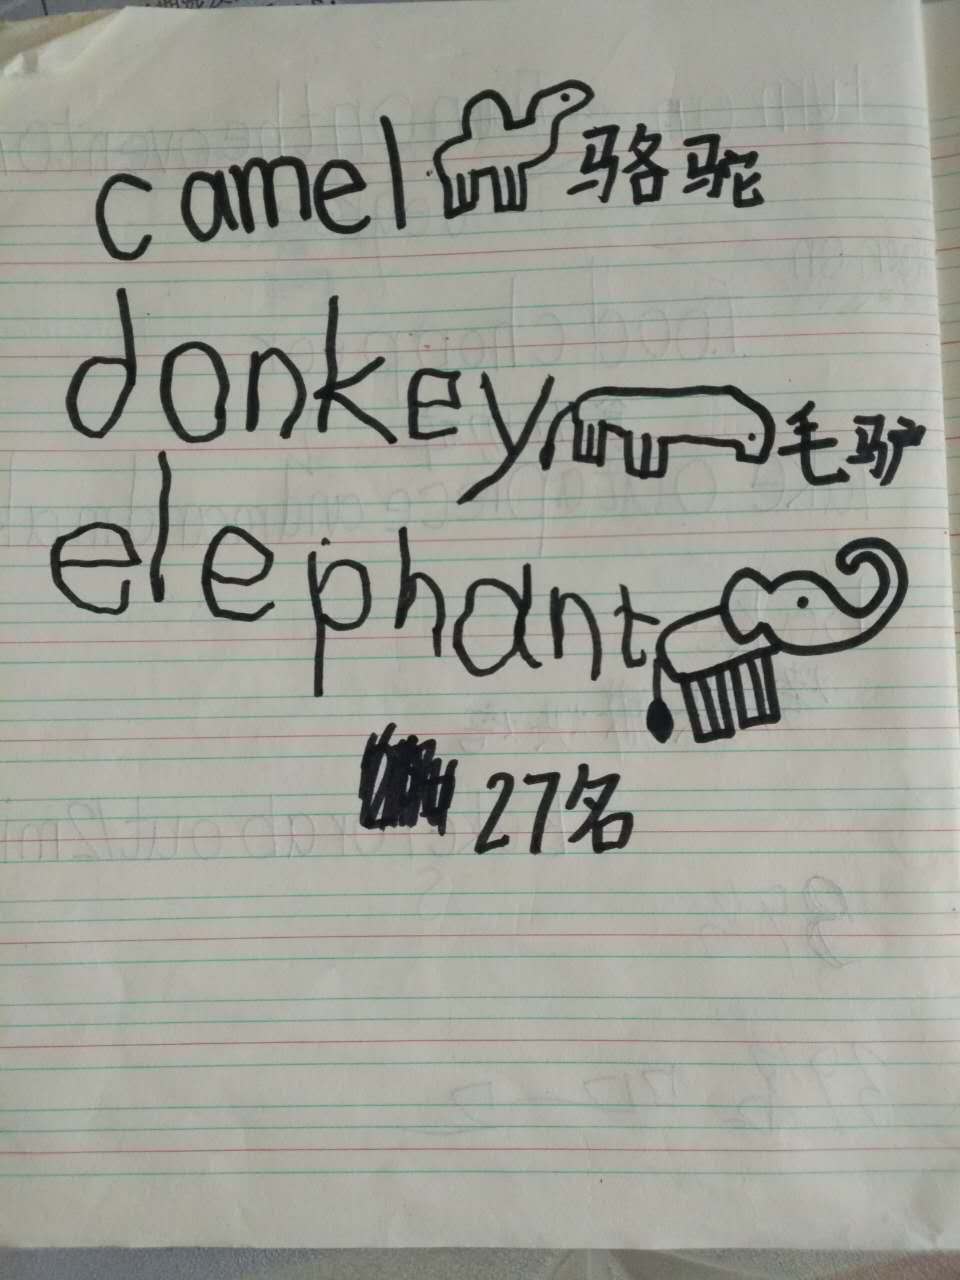 camel 骆驼
donkey 毛驴
elephant
27名